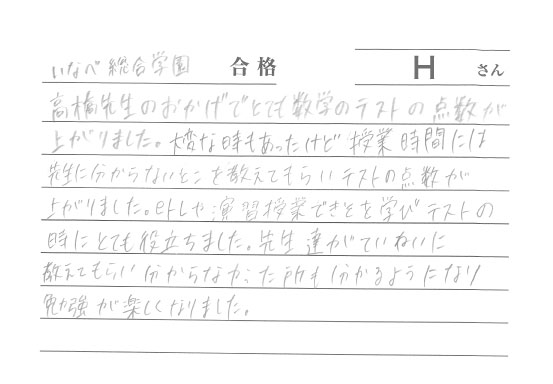 いなべ総合学園 合格 H さん
高橋先生のおかげでとても数学のテストの点数が
上がりました。大変な時もあったけど授業時間には
先生に分からないとこを教えてもらいテストの点数が
上がりました。eトレや演習授業できそを学びテストの
時にとても役立ちました。先生達がていねいに
教えてもらい分からなかった所も分かるようになり
勉強が楽しくなりました。